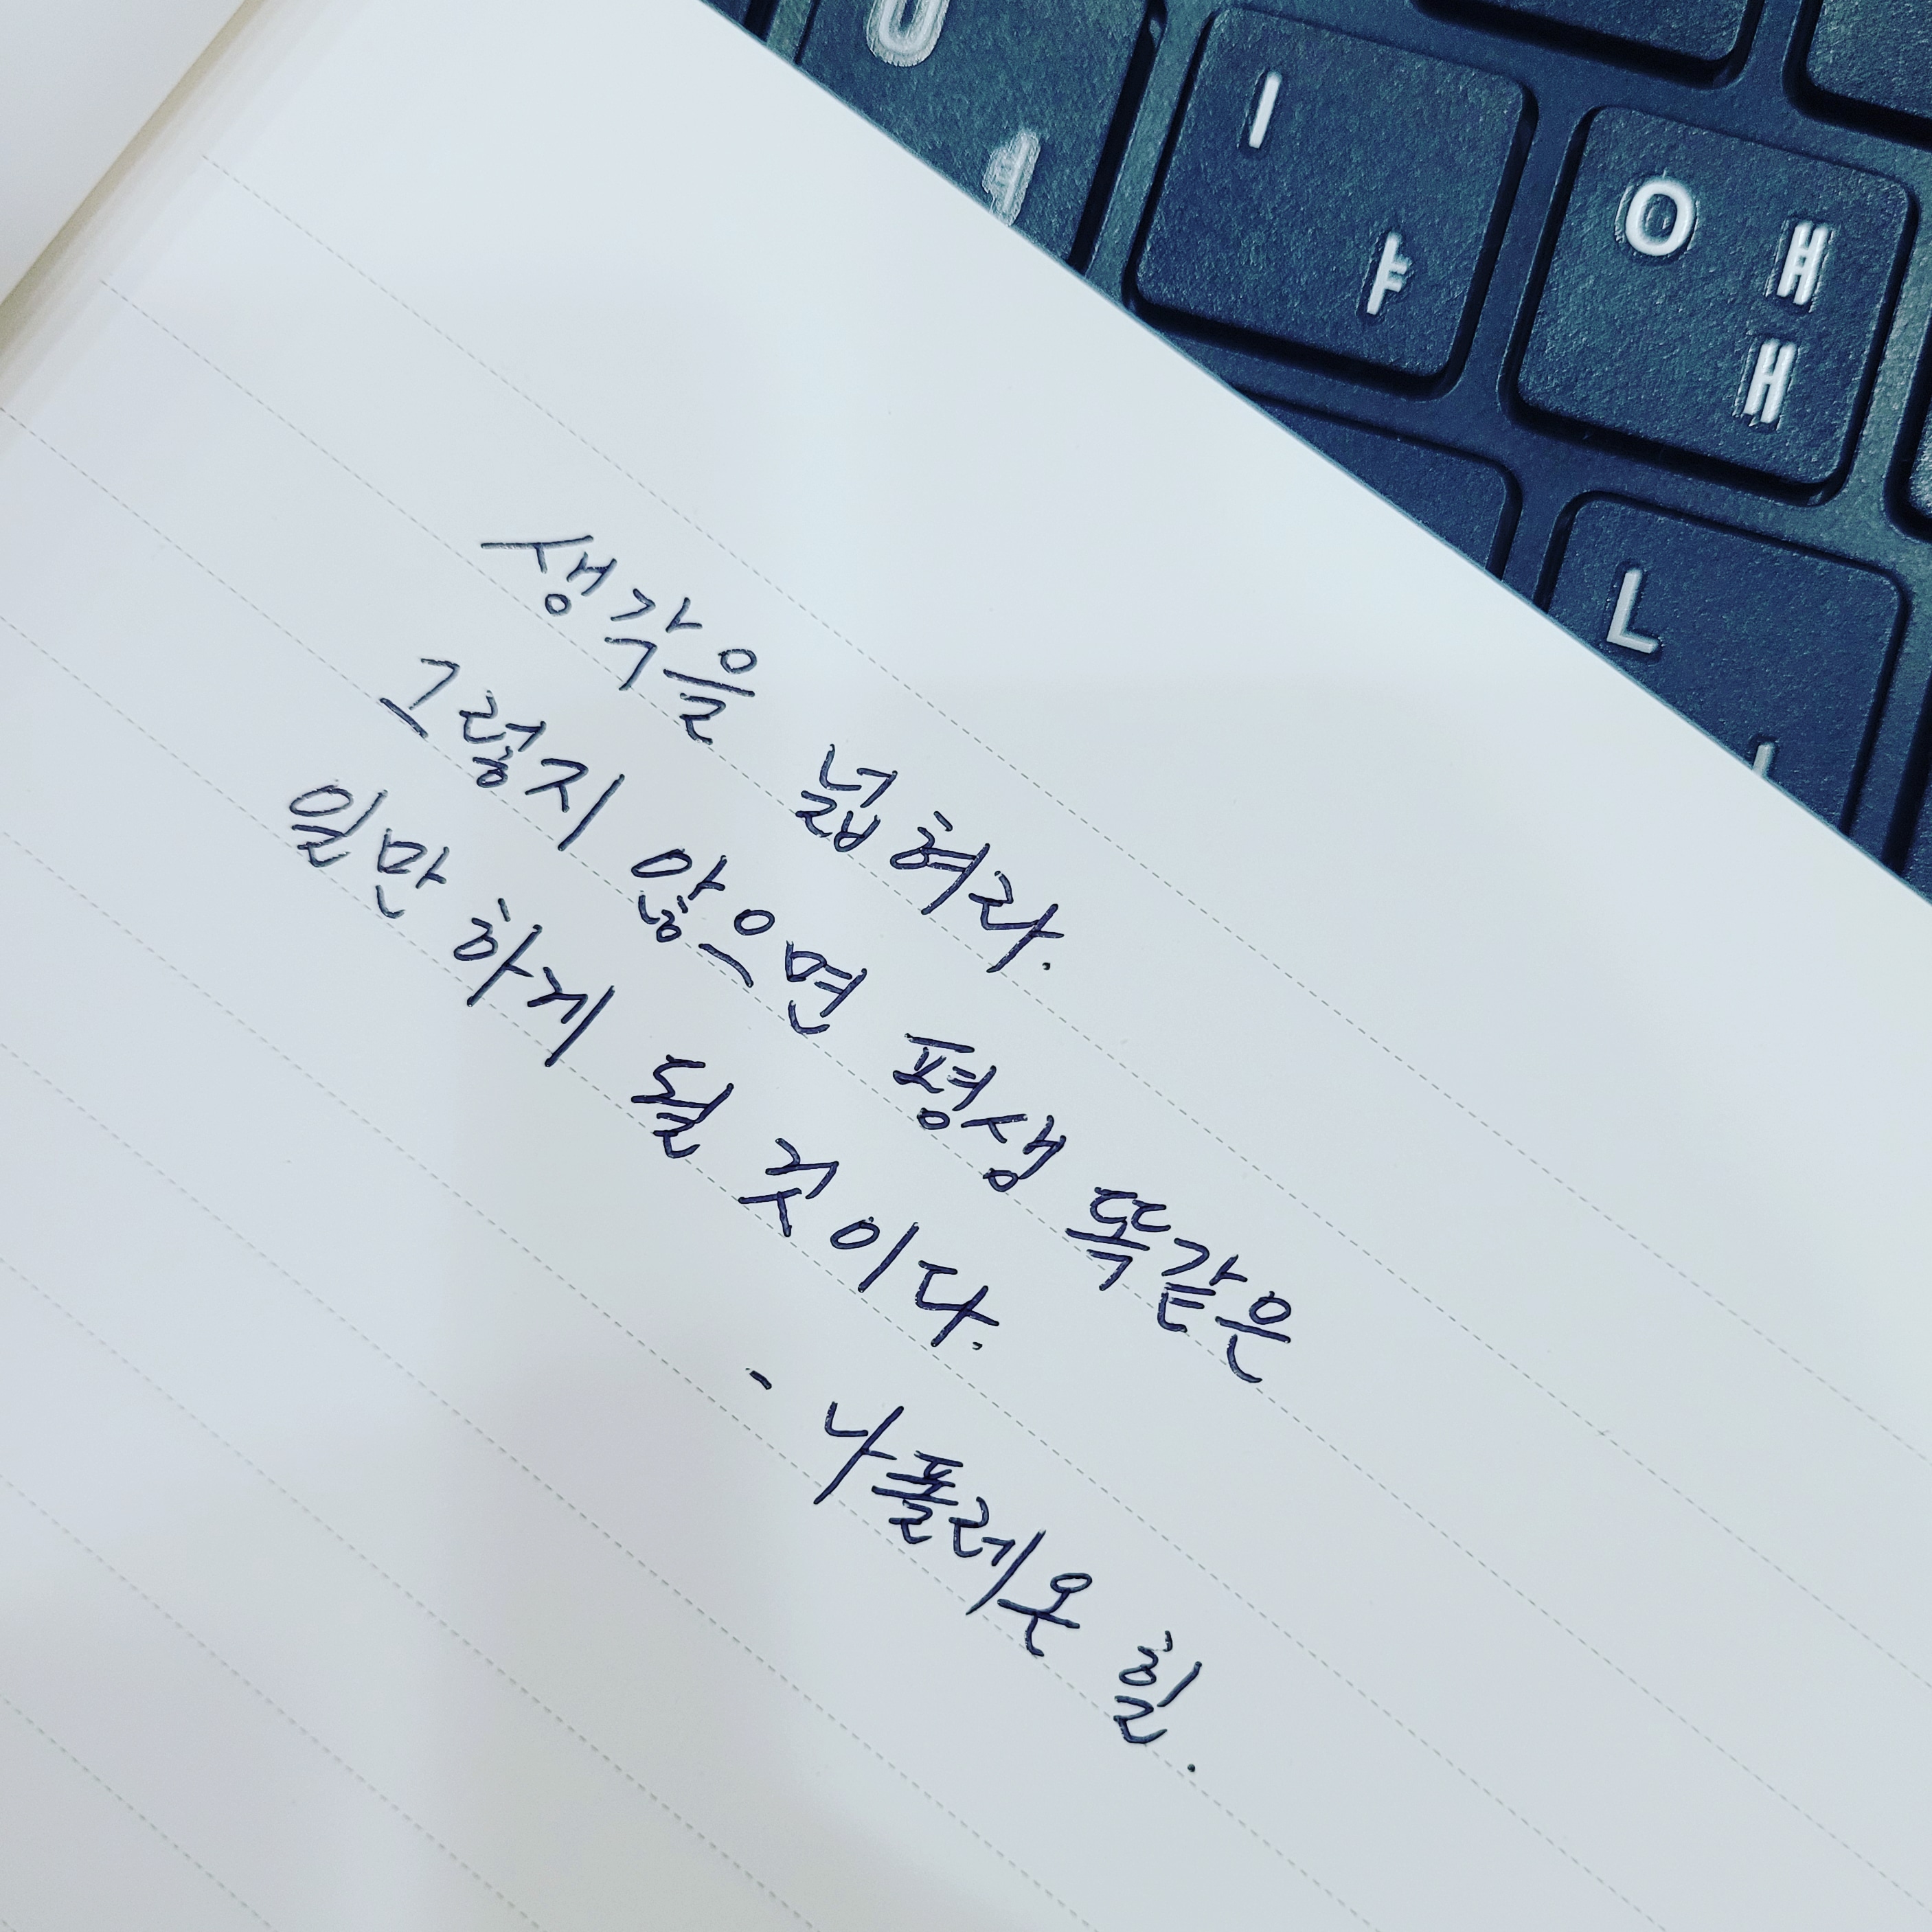 U ㅕ
I ㅑ
O ㅒ
ㅐ
L
생각을 넓혀라.
그렇지 않으면 평생 똑같은
일만 하게 될 것이다.
- 나폴레온 힐.